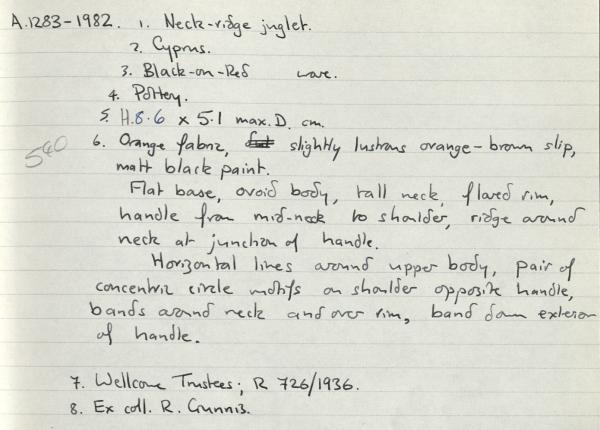 A.1283-1982. 1. Neck-ridge juglet.
2. Cyprus.
3. Black-on-Red ware.
4. Pottery.
5. H.8.6 x 5.1 max.D. cm.
540
6. Orange fabric, slightly lustrous orange-brown slip,
matt black paint.
Flat base, ovoid body, tall neck, flared rim,
handle from mid-neck to shoulder, ridge around
neck at junction of handle.
Horizontal lines around upper body, pair of
concentric circle motifs on shoulder opposite handle,
bands around neck and over rim, band down exterior
of handle.
7. Wellcome Trustees; R 726/1936.
8. Ex coll. R. Gunnis.